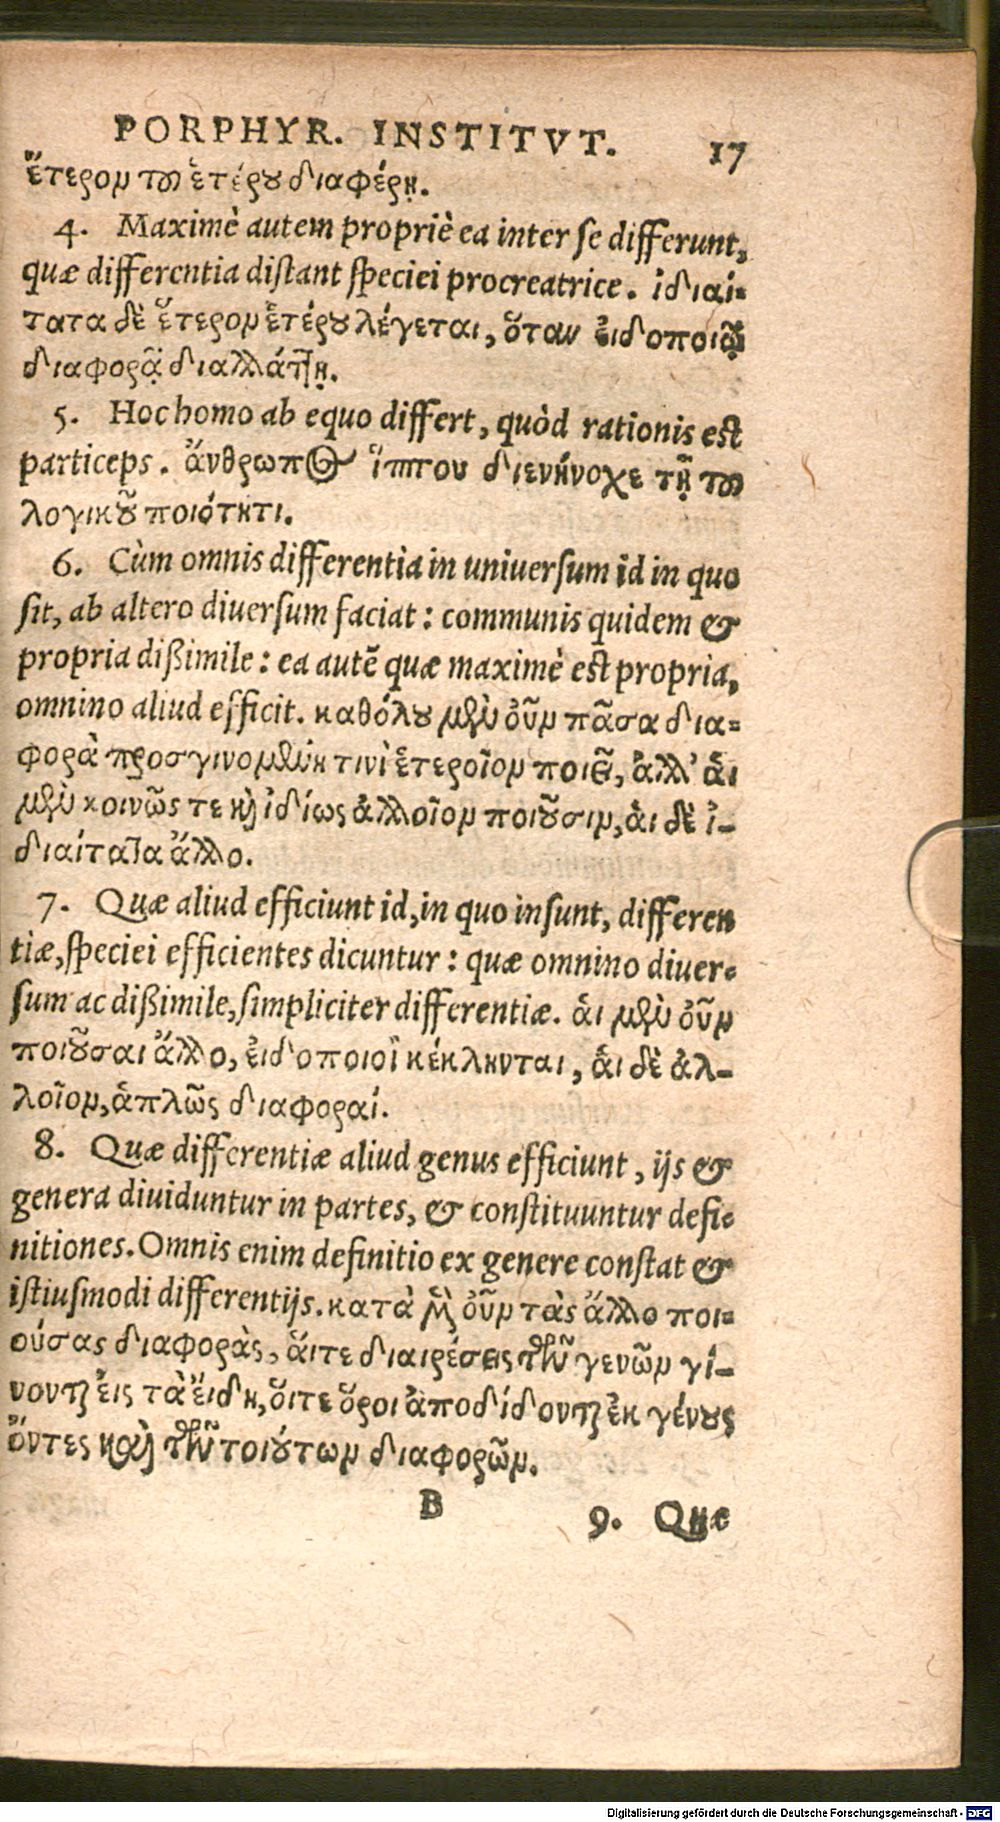 PORPHYR. INSTITVT. 17
ἕτερον τῷ ἑτέρου διαφέρῃ.
4. Maximè autem propriè ea inter se differunt,
quæ differentia distant speciei procreatrice. ἰδιαί-
τατα δὲ ἕτερον ἑτέρου λέγεται, ὅταν εἰδοποιῷ
διαφορᾷ διαλλάττῃ.
5. Hoc homo ab equo differt, quòd rationis est
particeps. ἄνθρωπος ἵππου διενήνοχε τῇ τῷ
λογικοῦ ποιότητι.
6. Cùm omnis differentia in uniuersum id in quo
sit, ab altero diuersum faciat: communis quidem &
propria dißimile: ea autẽ quæ maximè est propria,
omnino aliud efficit. καθόλου μὲν οὖν πᾶσα δια-
φορὰ προσγινομένη τινὶ ἑτεροῖον ποιεῖ, ἀλλ' ἁι
μὲν κοινῶς τε καὶ ἰδίως ἀλλοῖον ποιοῦσιν, ἁι δὲ ἰ-
διαίτατα ἄλλο.
7. Quæ aliud efficiunt id, in quo insunt, differen
tiæ, speciei efficientes dicuntur: quæ omnino diuer-
sum ac dißimile, simpliciter differentiæ. ἁι μὲν οὖν
ποιοῦσαι ἄλλο, ἐιδοποιοὶ κέκληνται, ἁι δὲ ἀλ-
λοῖον, ἁπλῶς διαφοραί.
8. Quæ differentiæ aliud genus efficiunt, ijs &
genera diuiduntur in partes, & constituuntur defi-
nitiones. Omnis enim definitio ex genere constat &
istiusmodi differentijs. κατὰ μὲν οὖν τὰς ἄλλο ποι-
ούσας διαφορὰς, ἅιτε διαιρέσεις τῶν γενῶν γί-
νονται ἐις τὰ ἔιδη, ὅιτε ὅροι ἀποδίδονται ἐκ γένους
ὄντες καὶ τῶν τοιούτων διαφορῶν.
B 9. Quæ
Digitalisierung gefördert durch die Deutsche Forschungsgemeinschaft - DFG